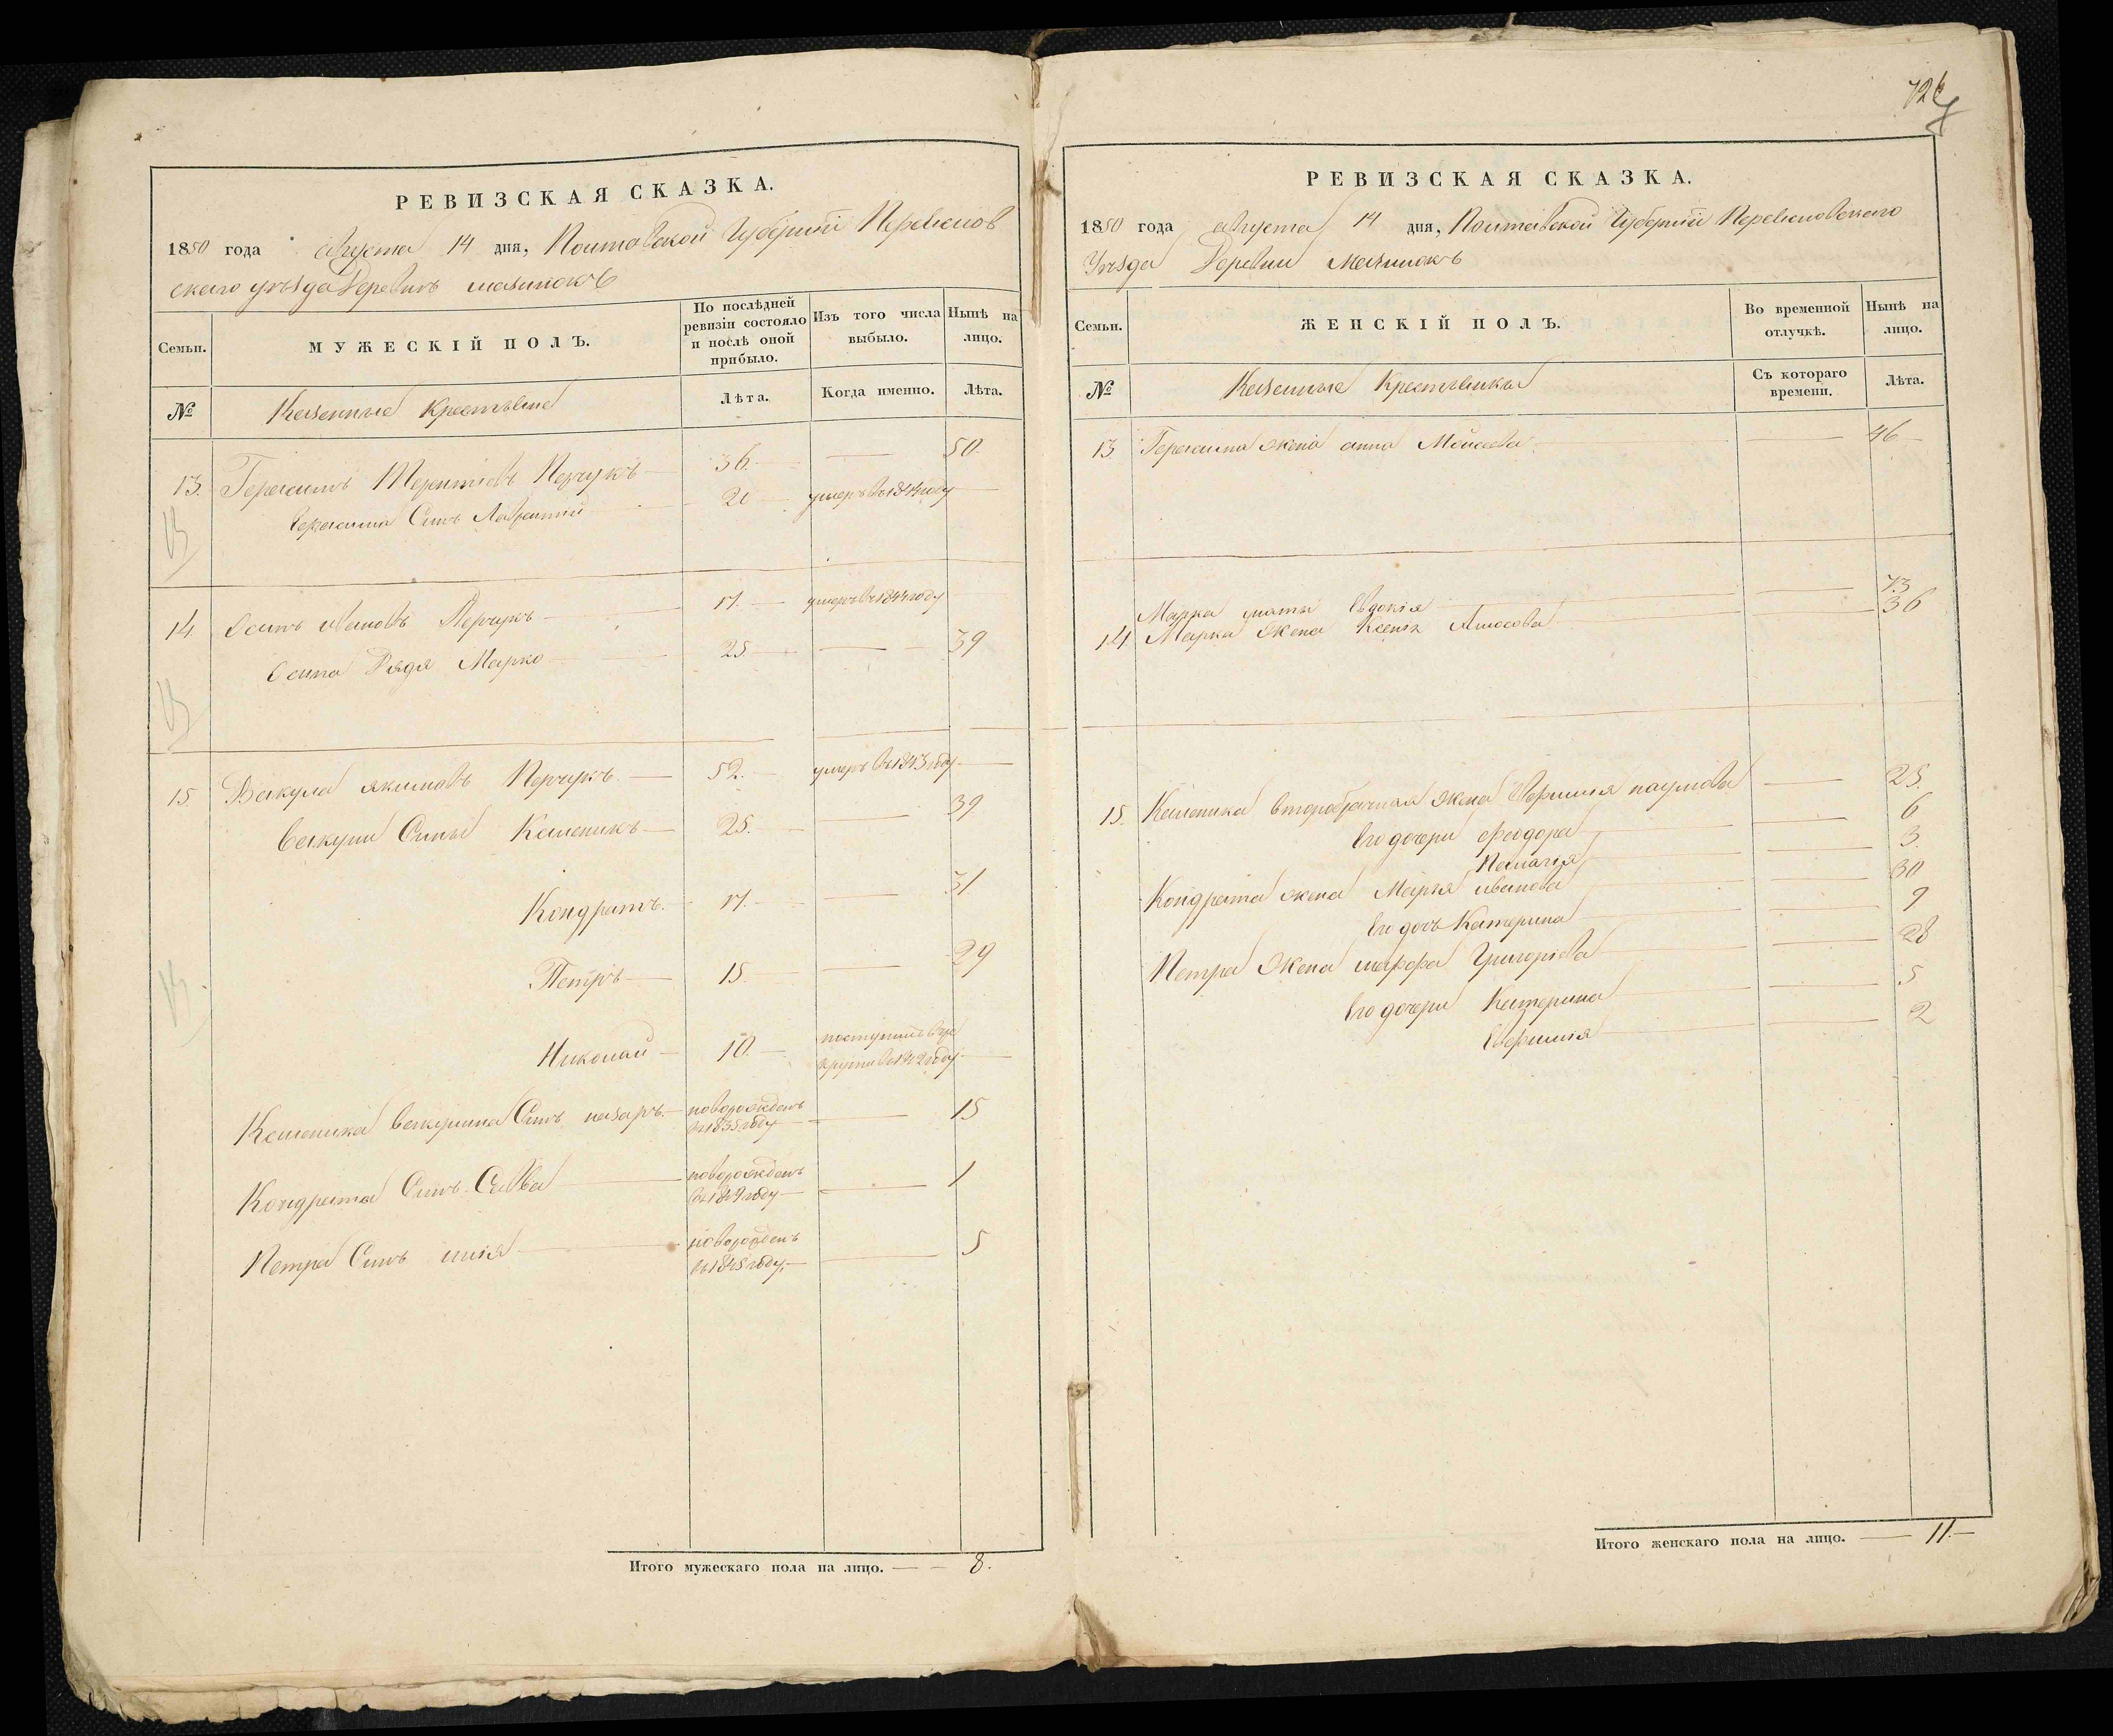 726
РЕВИЗСКАЯ СКАЗКА.
1850 года августа 14 дня, Полтавской Губерніи Переяслов
скаго уѣзда Деревнѣ
Семьи.
МУЖЕСКІЙ ПОЛЪ.
По послѣдней ревизіи состояло и послѣ оной прибыло.
Изъ того числа выбыло.
Нынѣ на лицо.
№
Казенные Крестьяне
Лѣта.
Когда именно.
Лѣта.
13. Герасимъ Терентіевъ 36. — 50.
Герасима Сынъ Лаврентій 20 умеръ въ 1844 году
14 Осипъ Ивановъ 17. умеръ въ 1844 году
Осипа Дядя Марко 25. — 39
15 Вакула Якимовъ 52. умеръ въ 1843 году
Вакулы Сыны 25. — 39.
Кондратъ 17. — 31
Петръ 15 — 29
Николай 10. поступилъ въ ре
круты въ 1842 году
Сынъ Назаръ новорожденъ
въ 1835 году — 15
Кондрата Сынъ Савва новорожденъ
въ 1849 году — 1
Петра Сынъ Илія новорожденъ
въ 1845 году — 5
Итого мужескаго пола на лицо. — 8.
РЕВИЗСКАЯ СКАЗКА.
1850 года августа 14 дня, Полтавской Губерніи Переясловскаго
Уѣзда Деревни
Семьи.
ЖЕНСКІЙ ПОЛЪ.
Во временной отлучкѣ.
Нынѣ на лицо.
№
Казенные Крестьянки
Съ котораго времени.
Лѣта.
13 Герасима жена Анна Моисеева — 46
Марка мать Евдокія — 73
14 Марка жена Ксенія Амосова — 36
15. второбрачная жена Евфимія Наумова — 25.
Его дочери Феодора — 6
Пелагія — 3.
Кондрата жена Марія Иванова — 30
Его дочь Катерина — 9
Петра жена Марфа Григоріева — 28
Его дочери Катерина — 5
Евфимія — 2
Итого женскаго пола на лицо. — 11.